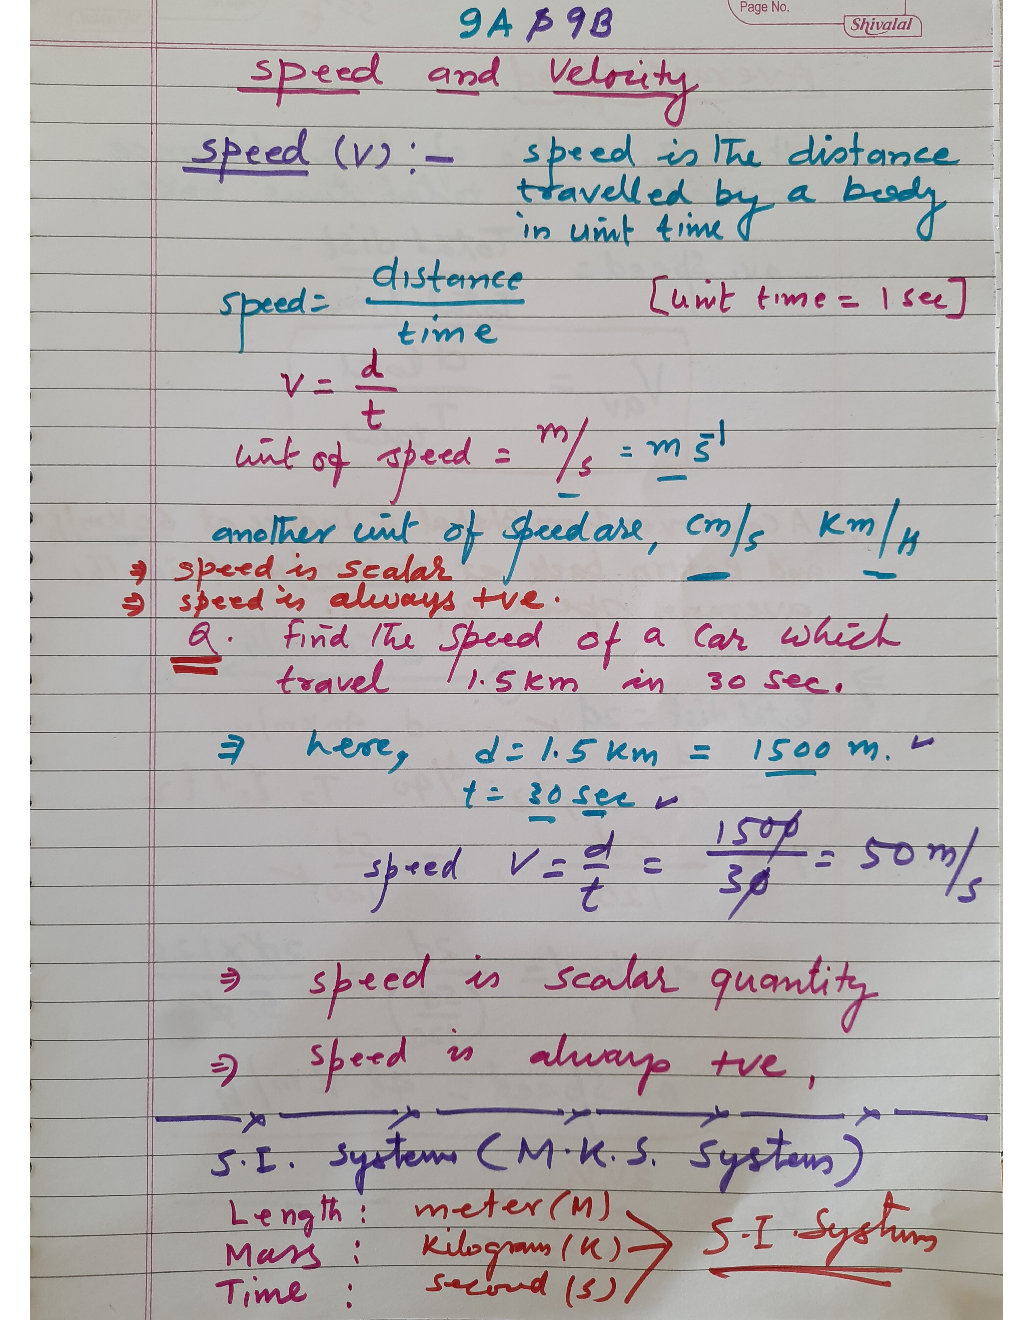 Page No.
Shivalal
9A & 9B
speed and Velocity
speed (V) :- speed is the distance
travelled by a body
in unit time
speed = distance / time [unit time = 1 sec]
V = d / t
unit of speed = m/s = m s⁻¹
another unit of speed are, cm/s Km/H
⇒ speed is scalar
⇒ speed is always +ve.
Q. find the speed of a car which
travel 1.5 km in 30 sec.
⇒ here, d = 1.5 km = 1500 m. ✓
t = 30 sec ✓
speed V = d/t = 1500/30 = 50 m/s
⇒ speed is scalar quantity
⇒ speed is always +ve,
S.I. System (M.K.S. System)
Length : meter (M)
Mass : Kilogram (K) S.I. System
Time : second (S)